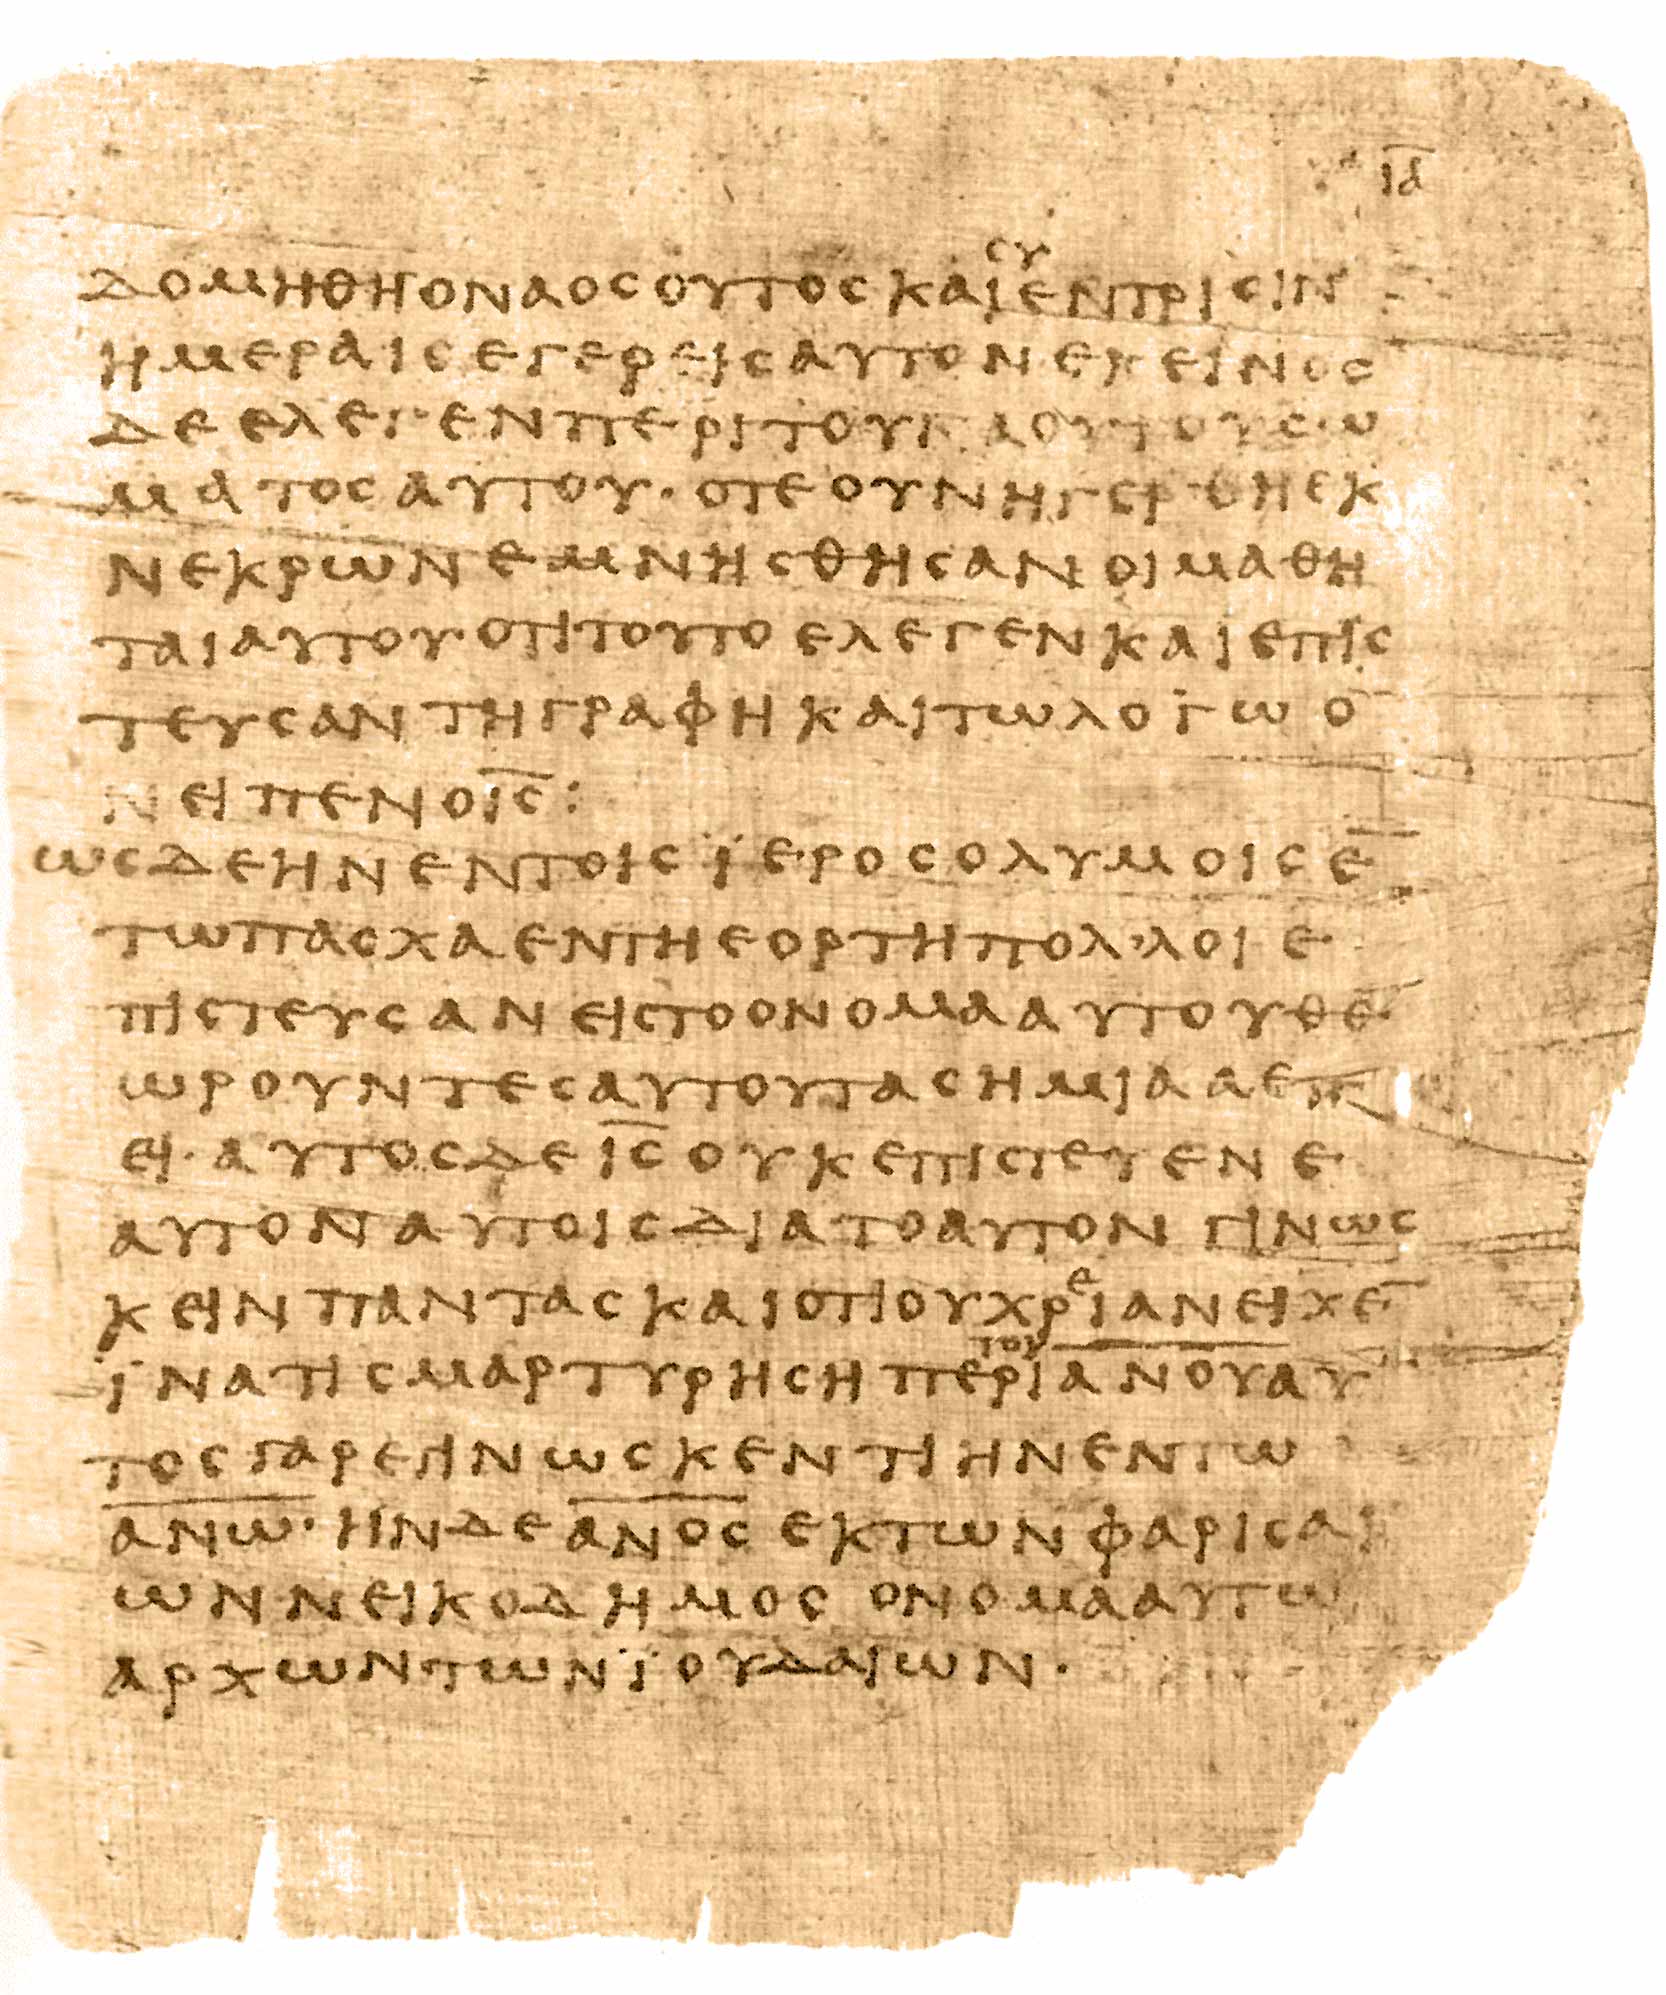 ΙΔ
ϹΥ
ΔΟΜΗΘΗΟΝΑΟϹΟΥΤΟϹΚΑΙΕΝΤΡΙϹΙΝ
ΗΜΕΡΑΙϹΕΓΕΡΕΙϹΑΥΤΟΝΕΚΕΙΝΟϹ
ΔΕΕΛΕΓΕΝΠΕΡΙΤΟΥΝΑΟΥΤΟΥϹΩ
ΜΑΤΟϹΑΥΤΟΥ·ΟΤΕΟΥΝΗΓΕΡΘΗΕΚ
ΝΕΚΡΩΝΕΜΝΗϹΘΗϹΑΝΟΙΜΑΘΗ
ΤΑΙΑΥΤΟΥΟΤΙΤΟΥΤΟΕΛΕΓΕΝΚΑΙΕΠΙϹ
ΤΕΥϹΑΝΤΗΓΡΑΦΗΚΑΙΤΩΛΟΓΩΟ
ΝΕΙΠΕΝΟΙ̅Ϲ̅:
ΩϹΔΕΗΝΕΝΤΟΙϹΪΕΡΟϹΟΛΥΜΟΙϹΕ̅
ΤΩΠΑϹΧΑΕΝΤΗΕΟΡΤΗΠΟΛ᾿ΛΟΙΕ
ΠΙϹΤΕΥϹΑΝΕΙϹΤΟΟΝΟΜΑΑΥΤΟΥΘΕ
ΩΡΟΥΝΤΕϹΑΥΤΟΥΤΑϹΗΜΙΑΑΕΠ
ΕΙ·ΑΥΤΟϹΔΕΙ̅Ϲ̅ΟΥΚΕΠΙϹΤΕΥΕΝΕ
ΑΥΤΟΝΑΥΤΟΙϹΔΙΑΤΟΑΥΤΟΝΓΙΝΩϹ
Ε
ΚΕΙΝΠΑΝΤΑϹΚΑΙΟΤΙΟΥΧΡΙΑΝΕΙΧΕ̅
ΤΟΥ
ΪΝΑΤΙϹΜΑΡΤΥΡΗϹΗΠΕΡΙΑ̅Ν̅Ο̅Υ̅ΑΥ
ΤΟϹΓΑΡΕΓΙΝΩϹΚΕΝΤΙΗΝΕΝΤΩ
Α̅Ν̅Ω̅·ΗΝΔΕΑ̅Ν̅Ο̅Ϲ̅ΕΚΤΩΝΦΑΡΙϹΑΙ
ΩΝΝΕΙΚΟΔΗΜΟϹΟΝΟΜΑΑΥΤΩ
ΑΡΧΩΝΤΩΝΪΟΥΔΑΙΩΝ·